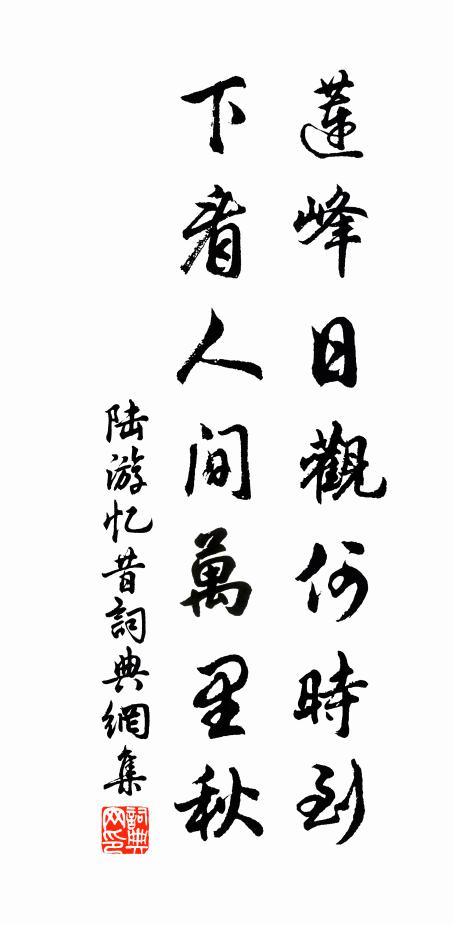 蓮峰日觀何時到
下看人間萬里秋
陆游忆昔詞典網集
詞典网印